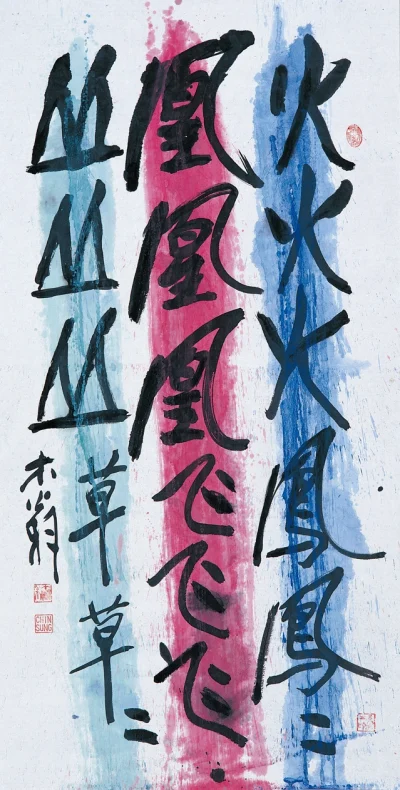 火火火鳳鳳二
凰凰凰飞飞飞
丛丛丛草草二
CHIN
SUNG